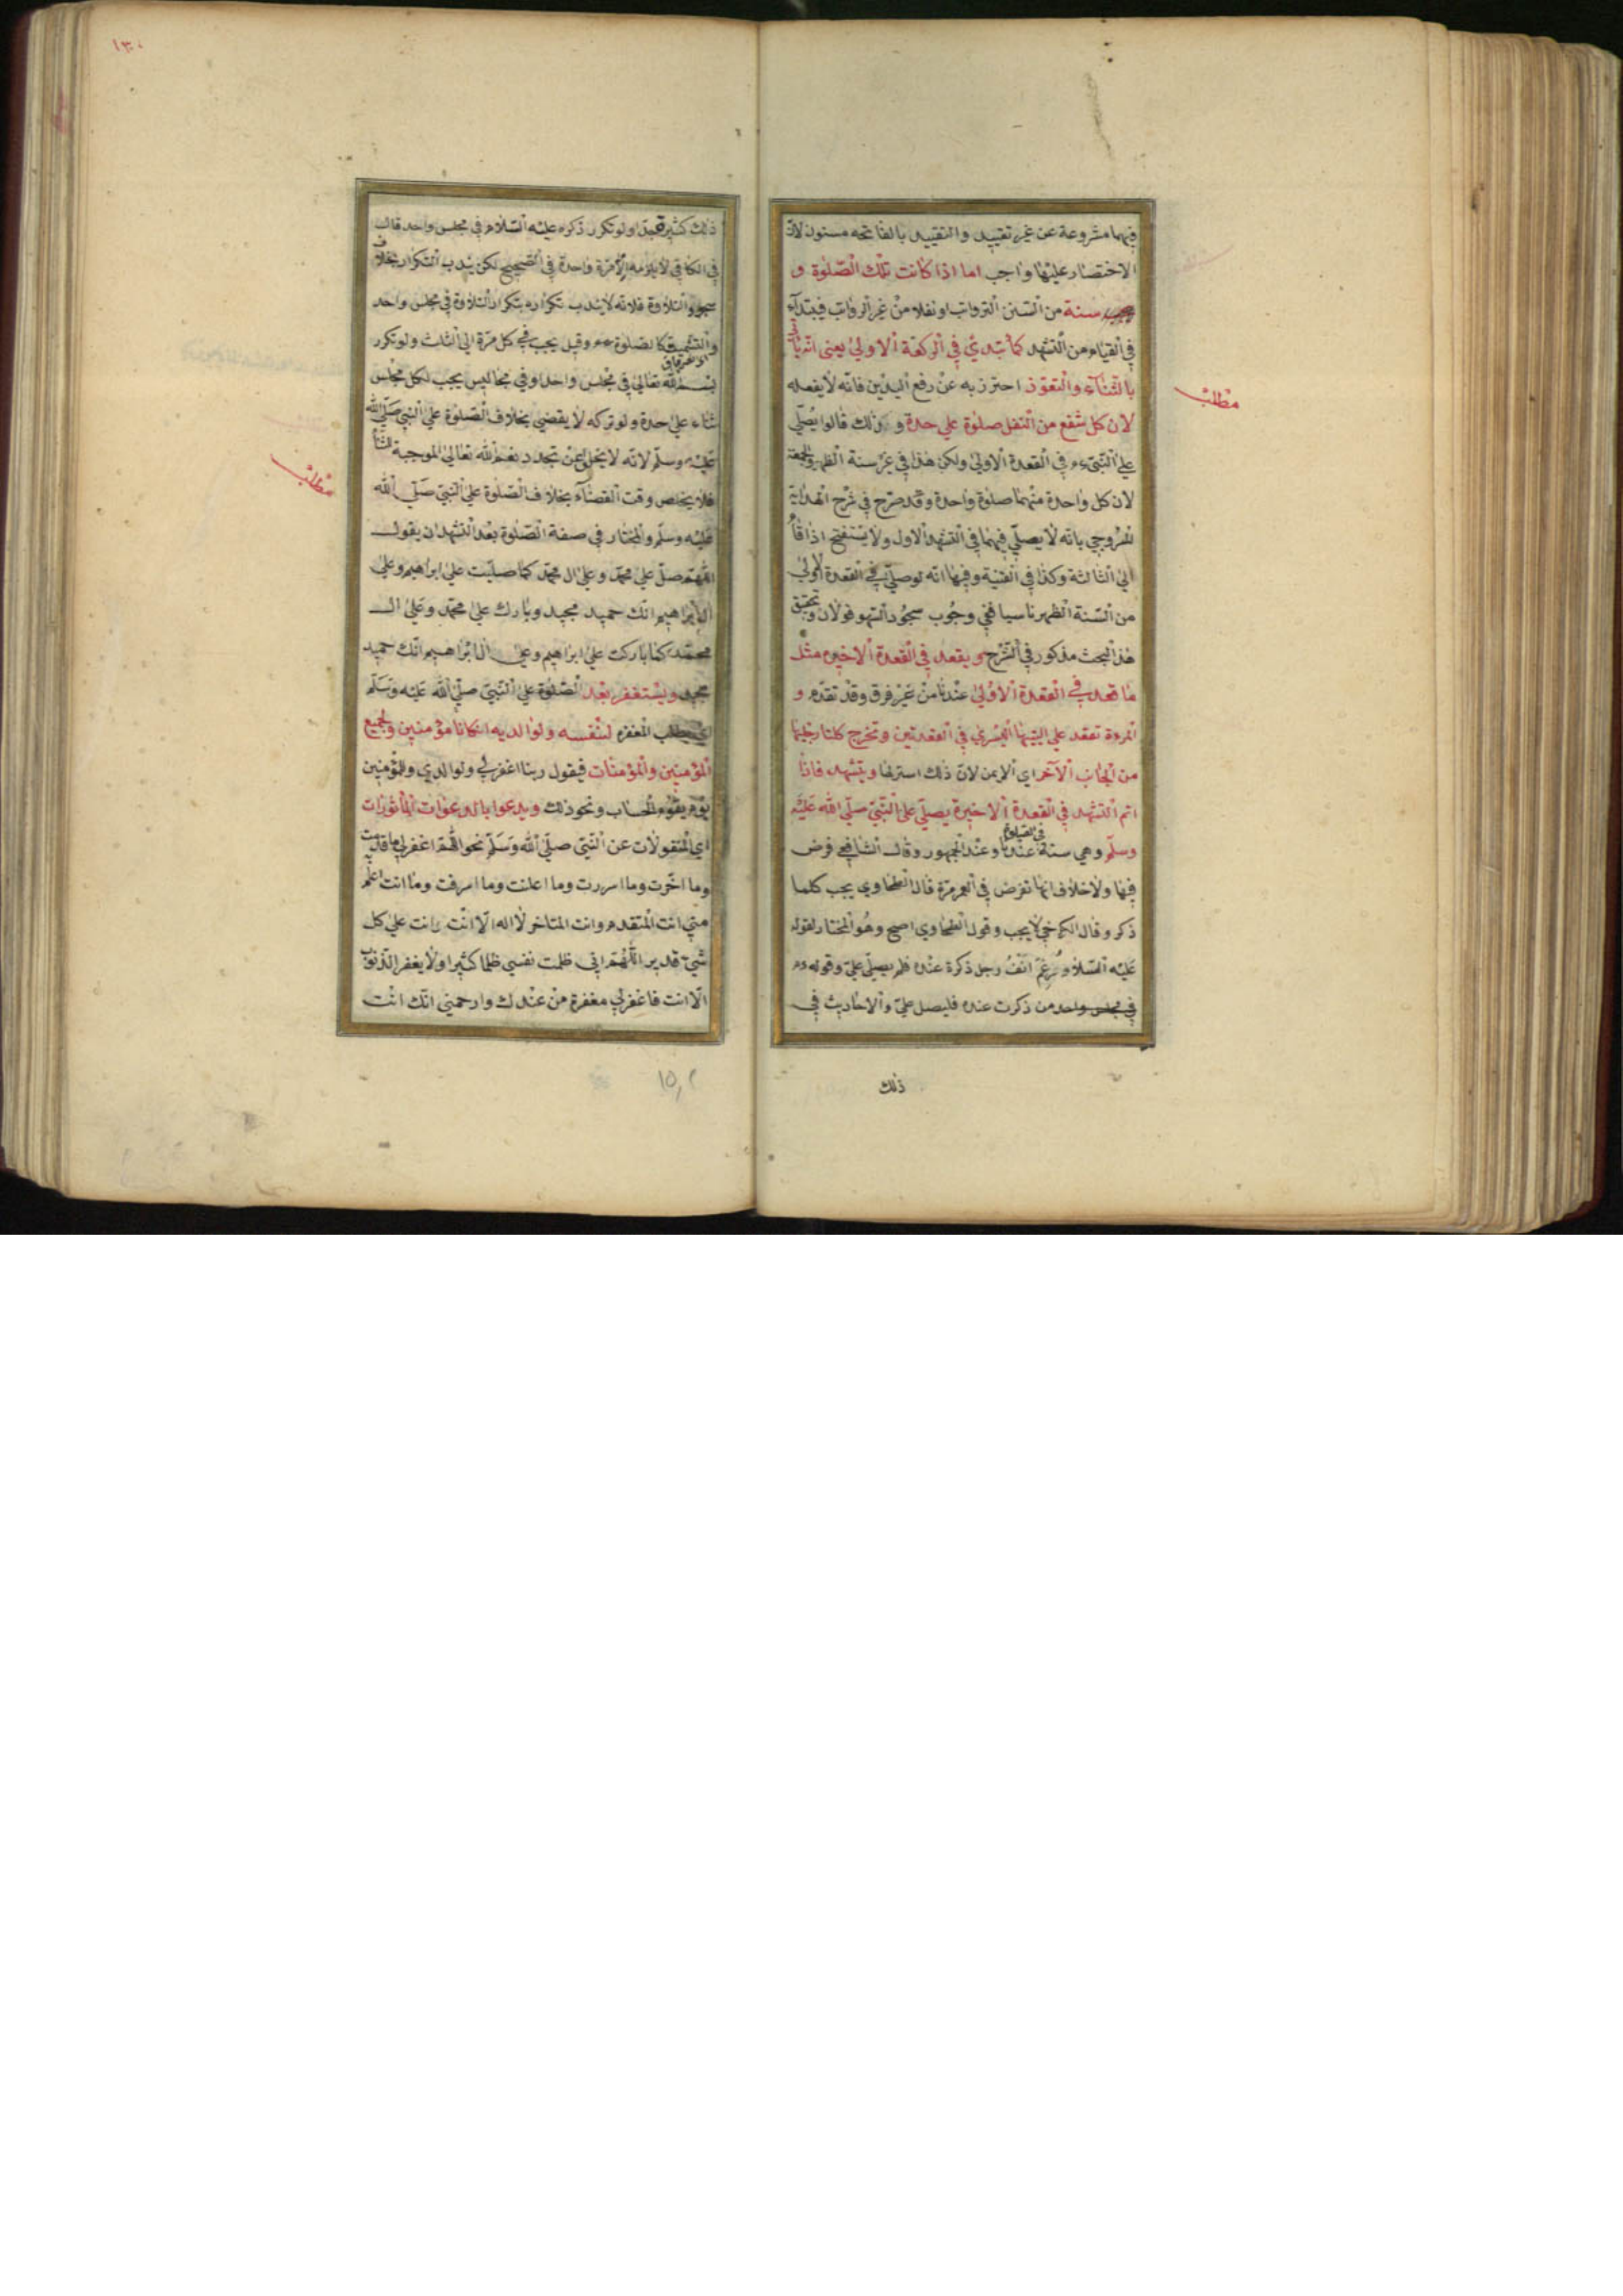 فيهما مشروعة عن غير تقييد والتقييد بالفاتحه مسنون لان
الاختصار عليها واجب اما اذا كانت تلك الصلوة و
سنة من السنن الرواتب او نفلا من غير الرواتب فيبتدأ
في القيام من التشهد كما يبتدئ في الركعة الاولى يعنى انه يأتى
بالثناء والتعوذ احترز به عن رفع اليدين فانه لا يفعله
لان كل شفع من النفل صلوة على حدة و لذلك قالوا يصلى
على النبى ء م في القعدة الاولى ولكن هذا في غير سنة الظهر والجمعة
لان كل واحدة منهما صلوة واحدة وقد صرح في شرح الهداية
للسروجي بانه لا يصلى فيهما في التشهد الاول ولا يستفتح اذا قام
الى الثالثة وكذا في القنية وفيها انه لو صلى في القعدة الاولى
من السنة الظهر ناسيا ففي وجوب سجود السهو قولان وتحقيق
هذا البحث مذكور في الشرح ويقعد في القعدة الاخيره مثل
ما قعد في القعدة الاولى عندنا من غير فرق وقد تقدم و
المرءة تقعد على اليتها اليسرى في القعدتين وتخرج كلتا رجليها
من الجانب الآخر اي الايمن لان ذلك استر لها ويتشهد فاذا
اتم التشهد في القعدة الاخيرة يصلى على النبى صلى الله عليه
وسلم وهي سنة في الصلوة عندنا وعند الجمهور وقال الشافعي فرض
فيها ولا خلاف انها تفرض في العمر مرة قال الطحاوي يجب كلما
ذكر وقال الكرخي لا يجب وقول الطحاوي اصح وهو المختار لقوله
عليه السلام رغم انف رجل ذكرة عنده فلم يصلى علىّ وقوله ءم
في مجلس واحد من ذكرت عنده فليصل علىّ والاحاديث في
ذلك
مطلب
١٣٠
ذلك كثيرة جدا ولو تكرر ذكره عليه السلام في مجلس واحد قال
في الكافي لا يلزمه الا مرة واحدة في الصحيح لكن يندب التكرار بخلاف
سجود التلاوة فلانه لا يندب تكراره بتكرار التلاوة في مجلس واحد
والتشميت كالصلوة ءم وقيل يجب في كل مرة الى الثلث ولو تكرر
الله تعالى في مجلس واحد او في مجاليس يجب لكل مجلس
ثناء على حدة ولو تركه لا يقضي بخلاف الصلوة على النبي صلى الله
عليه وسلم لانه لا يخلو عن تجدد نعم الله تعالى الموجبة للثناء
فلا يخلص وقت القضاء بخلاف الصلوة على النبي صلى الله
عليه وسلم والمختار في صفة الصلوة بعد التشهد ان يقول
اللهم صل على محمد وعلى ال محمد كما صليت على ابراهيم وعلى
ال ابراهيم انك حميد مجيد وبارك على محمد وعلى ال
محمد كما باركت على ابراهيم وعلى ال ابراهيم انك حميد
مجيد ويستغفر بعد الصلوة على النبي صلى الله عليه وسلم
اي يطلب المغفره لنفسه ولوالديه ان كانا مؤمنين ولجميع
المؤمنين والمؤمنات فيقول ربنا اغفرلي ولوالدي وللمؤمنين
يوم يقوم الحساب ونحو ذلك ويدعوا بالدعوات المأثورات
اي المنقولات عن النبي صلى الله وسلم نحو اللهم اغفرلي ما قدمت
وما اخرت وما اسررت وما اعلنت وما اسرفت وما انت اعلم به
مني انت المتقدم وانت المتاخر لا اله الا انت وانت على كل
شيء قدير اللهم اني ظلمت نفسي ظلما كثيرا ولا يغفر الذنوب
الا انت فاغفرلي مغفرة من عندك وارحمني انك انت
مطلب